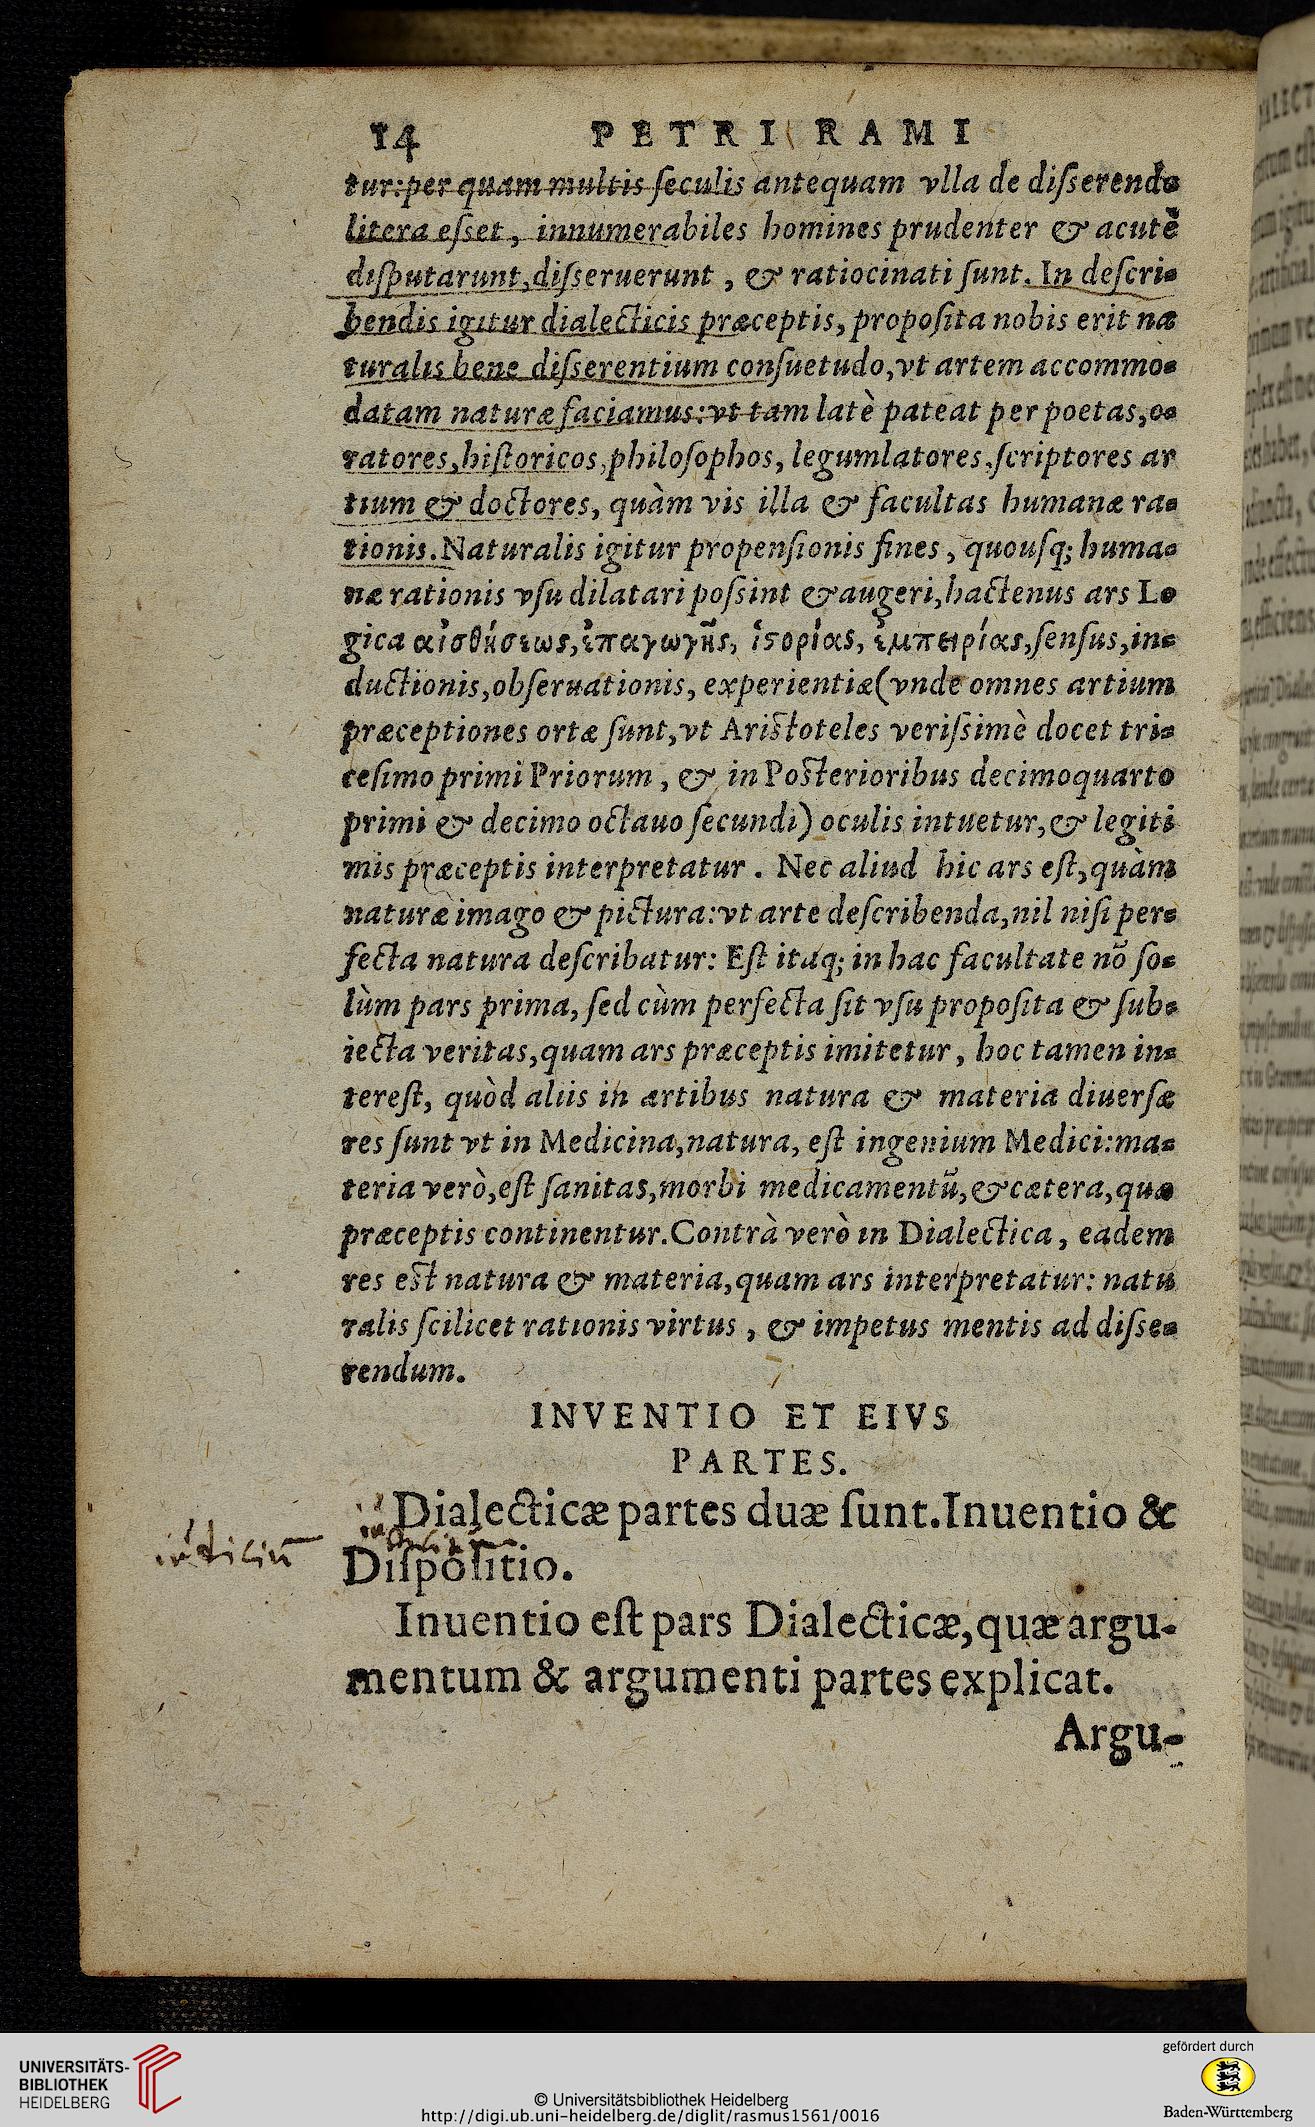 14 PETRI RAMI
tur:per quam multis ſeculis antequam vlla de diſſerendo
litera eſſet, innumerabiles homines prudenter & acutè
diſputarunt,diſſeruerunt, & ratiocinati ſunt. In deſcri-
bendis igitur dialecticis præceptis, propoſita nobis erit na
turalis bene diſſerentium conſuetudo,vt artem accommo-
datam naturæ faciamus:vt tam latè pateat per poetas,o-
ratores,hiſtoricos,philoſophos, legumlatores,ſcriptores ar
tium & doctores, quàm vis illa & facultas humanæ ra-
tionis.Naturalis igitur propenſionis fines, quouſq; huma-
næ rationis vſu dilatari poſsint & augeri,hactenus ars Lo
gica αἰσθήσεως,ἐπαγωγῆς, ἱϛορίας, ἐμπειρίας,ſenſus,in-
ductionis,obſeruationis, experientiæ(vnde omnes artium
præceptiones ortæ ſunt,vt Ariſtoteles veriſsimè docet tri-
ceſimo primi Priorum, & in Poſterioribus decimoquarto
primi & decimo octauo ſecundi) oculis intuetur,& legiti
mis præceptis interpretatur. Nec aliud hic ars eſt,quàm
naturæ imago & pictura:vt arte deſcribenda,nil niſi per-
fecta natura deſcribatur: Eſt itaq; in hac facultate nõ ſo-
lùm pars prima, ſed cùm perfecta ſit vſu propoſita & ſub-
iecta veritas,quam ars præceptis imitetur, hoc tamen in-
tereſt, quòd aliis in artibus natura & materia diuerſæ
res ſunt vt in Medicina,natura, eſt ingenium Medici:ma-
teria verò,eſt ſanitas,morbi medicamentũ,& cætera,quæ
præceptis continentur.Contrà verò in Dialectica, eadem
res eſt natura & materia,quam ars interpretatur: natu
ralis ſcilicet rationis virtus, & impetus mentis ad diſſe-
rendum.
INVENTIO ET EIVS
PARTES.
Dialecticæ partes duæ ſunt.Inuentio &
iudiciũ
Diſpoſitio.
Inuentio eſt pars Dialecticæ,quæ argu-
mentum & argumenti partes explicat.
Argu-
UNIVERSITÄTS-
BIBLIOTHEK
HEIDELBERG
© Universitätsbibliothek Heidelberg
http://digi.ub.uni-heidelberg.de/diglit/rasmus1561/0016
gefördert durch
Baden-Württemberg